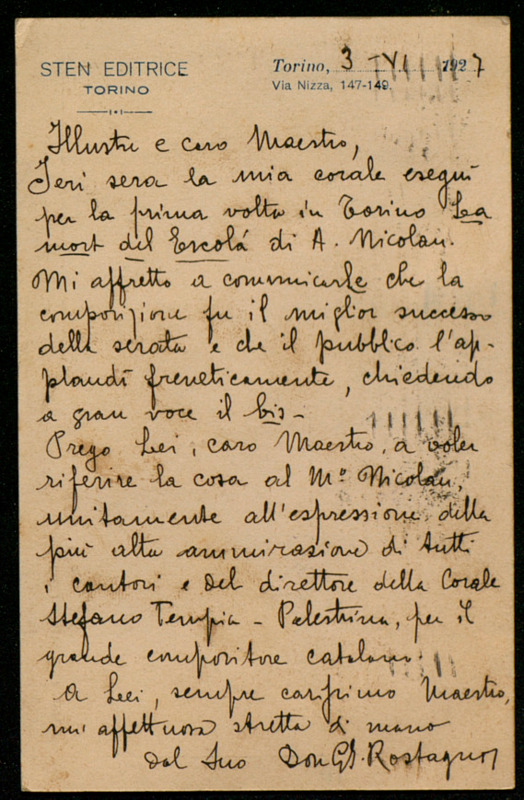 STEN EDITRICE
TORINO
Torino, 3 IVI 1927
Via Nizza, 147-149.
Illustre e caro Maestro,
Ieri sera la mia corale eseguì
per la prima volta in Torino La
mort del Escolá di A. Nicolau.
Mi affretto a comunicarle che la
composizione fu il miglior successo
della serata e che il pubblico l'ap-
plaudì freneticamente, chiedendo
a gran voce il bis -
Prego Lei, caro Maestro, a voler
riferire la cosa al Mº Nicolau,
unitamente all'espressione della
più alta ammirazione di tutti
i cantori e del direttore della Corale
Stefano Tempia - Palestrina, per il
grande compositore catalano.
A Lei, sempre carissimo Maestro,
un' affettuosa stretta di mano
dal Suo Don Gh. Rostagno